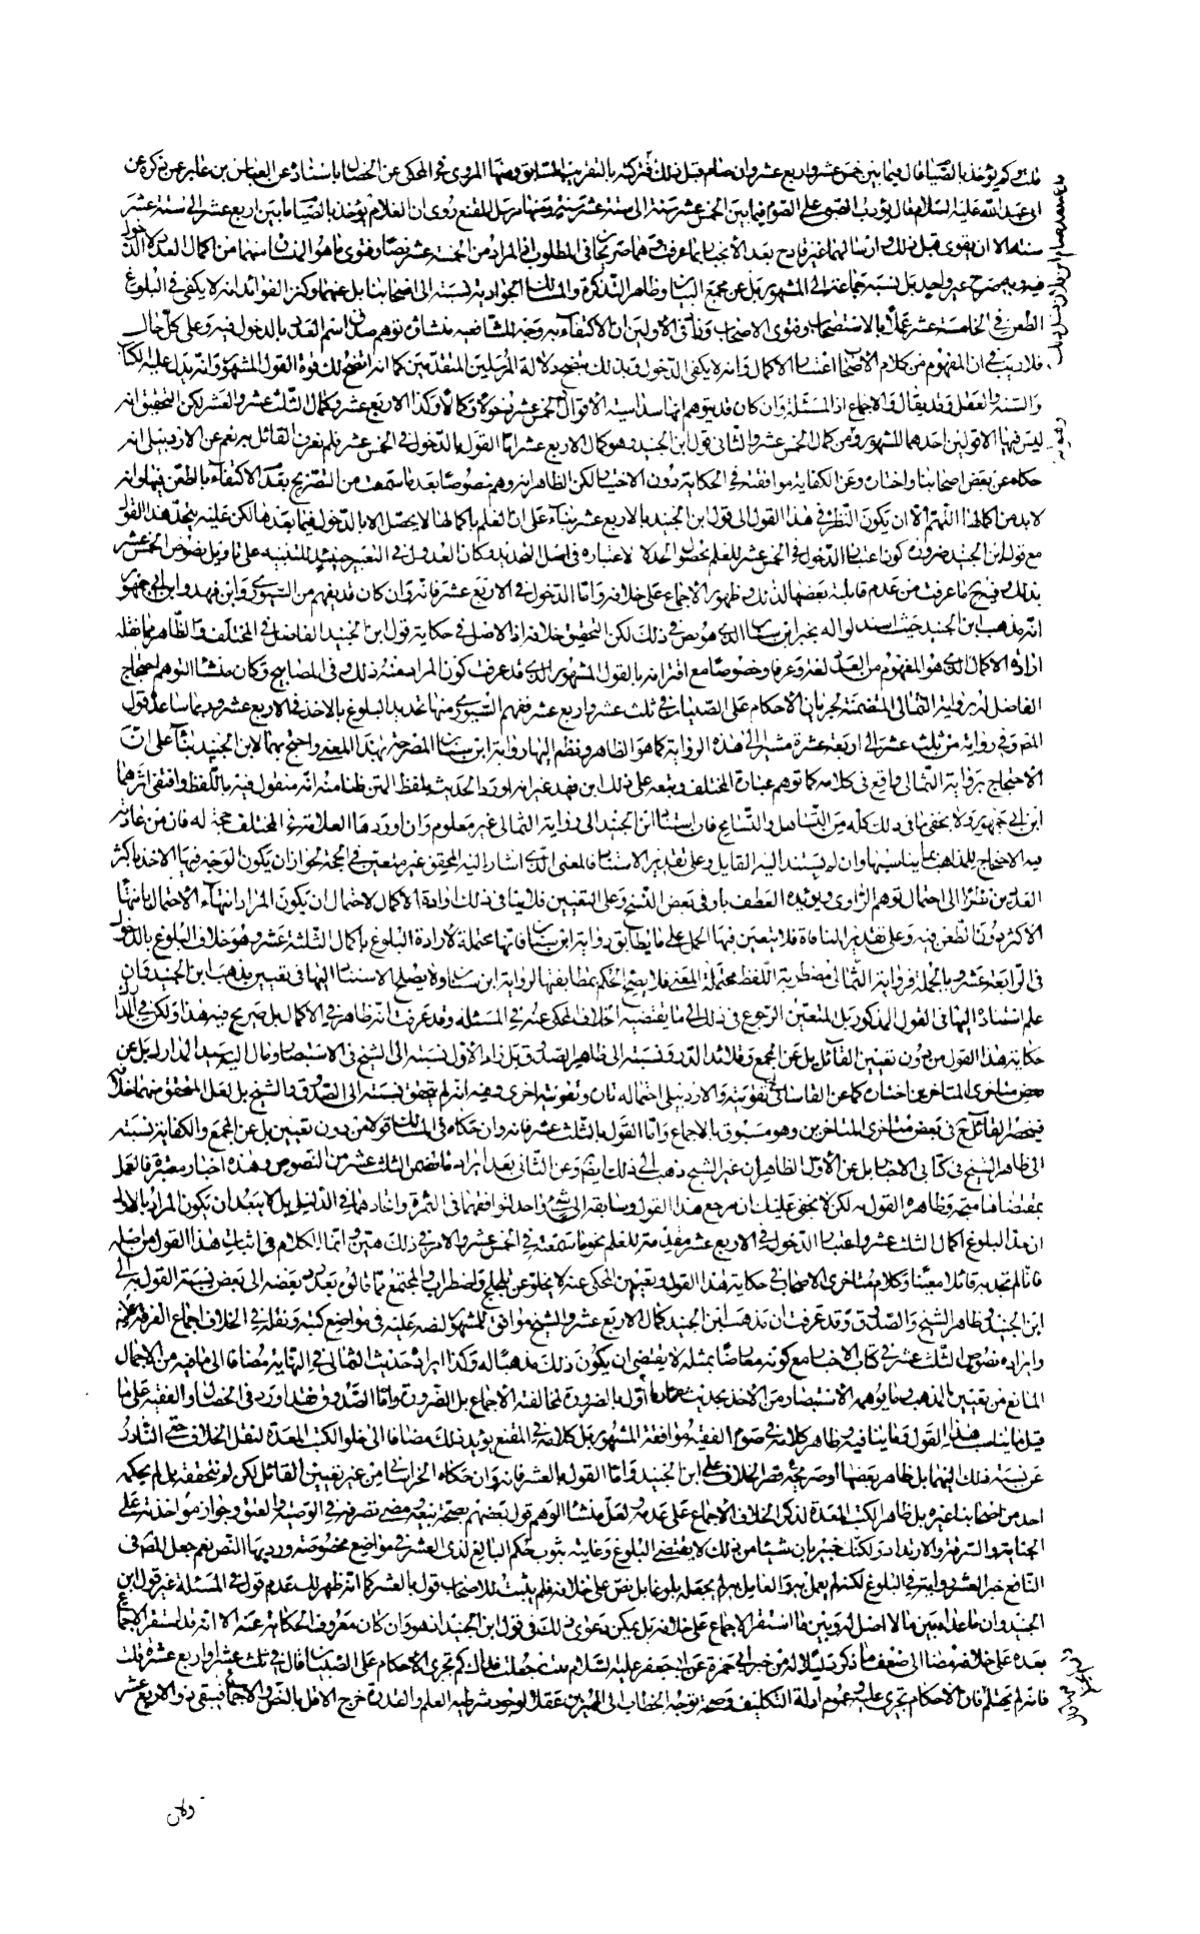 قلت وكم يؤخذ بالصيام قال فيما بين خمس عشر واربع عشر وان صام قبل ذلك فتركته بالتقريب السابق ومنها المروي في المحكى عن الخصال باسناده عن العباس بن عامر عمن ذكره عن
ابى عبد الله عليه السلام قال يؤدب الصبى على الصوم فيما بين الخمس عشر سنة الى ستة عشر سنة ومنها مرسل المقنع روى ان الغلام يؤخذ بالصيام ما بين اربع عشر الى ستة عشر
سنة الا ان يقوى قبل ذلك وارسالهما غير قادح بعد الانجبار بما عرفت وهما صريحان في المطلوب اذ المراد من الخمسة عشر نصا وفتوى ما هو المتبادر منهما من اكمال العدد لا الدخول
فيه وبه صرح غير واحد بل نسبه جماعة الى المشهور بل عن مجمع البيان وظاهر التذكرة والمسالك الجوادية نسبته الى اصحابنا بل عنهما وكنز الفوائد انه لا يكفى في البلوغ
الطعن في الخامسة عشر عملا بالاستصحاب وفتوى الاصحاب وزاد في الاولين ان الاكتفاء به وجه للشافعية منشاؤه توهم صدق اسم العدد بالدخول فيه وعلى كل حال
فلا ريب في ان المفهوم من كلام الاصحاب اعتبار الاكمال وانه لا يكفى الدخول وبذلك يتضح دلالة المرسلين المتقدمين كما انه اتضح لك قوة القول المشهور وانه يدل عليه الكتاب
والسنة والعقل وقد يقال والاجماع اذ المسئلة وان كان قد يتوهم انها سداسية الاقوال الخمس عشر دخولا وكمالا وكذا الاربع عشر وكمال الثلث عشر والعشر لكن التحقيق انه
ليس فيها الا قولين احدهما المشهور وهو كمال الخمس عشر والثانى قول ابن الجنيد وهو كمال الاربع عشر اما القول بالدخول في الخمس عشر فلم نعرف القائل به نعم عن الاردبيلى انه
حكاه عن بعض اصحابنا واختاره وعن الكفاية موافقته في الحكاية دون الاختيار لكن الظاهر انه وهم خصوصا بعد ما سمعت من التصريح بعدم الاكتفاء بالطعن فيها وانه
لا بد من اكمالها اللهم الا ان يكون النظر في هذا القول الى قول ابن الجنيد بالاربع عشر بناء على ان العلم باكمالها لا يحصل الا بالدخول فيما بعدها لكن عليه يتحد هذا القول
مع قول ابن الجنيد ضرورة كون اعتبار الدخول في الخمس عشر للعلم بحصول الحد لا لاعتباره في اصل التحديد وكان العدول في التعبير حينئذ للتنبيه على تاويل نصوص الخمس عشر
بذلك وفيه ما عرفت من عدم قابلية بعضها لذلك وظهور الاجماع على خلافه واما الدخول في الاربع عشر فانه وان كان قد يفهم من السيورى وابن فهد وابن ابى جمهور
انه مذهب ابن الجنيد حيث استدلوا له بخبر ابن سنان الذى هو نص في ذلك لكن التحقيق خلافه اذ الاصل في حكاية قول ابن الجنيد الفاضل في المختلف والظاهر مما نقله
ارادة الاكمال الذى هو المفهوم من العدد لغة وعرفا وخصوصا مع اقترانه بالقول المشهور الذى قد عرفت كون المراد منه ذلك وفى المصابيح وكان منشا التوهم احتجاج
الفاضل له برواية الثمالى المتضمنة لجريان الاحكام على الصبيان في ثلث عشر واربع عشر ففهم السيورى منها تحديد البلوغ بالاخذ في الاربع عشر وربما ساعده قول
في رواية من ثلث عشر الى اربعة عشرة مشيرا الى هذه الرواية كما هو الظاهر ونظم اليها رواية ابن سنان المصرحة بهذا المعنى واحتج بهما لابن الجنيد بناء على ان
الاحتجاج برواية الثمالى واقع في كلامه كما توهم عبارة المختلف وتبعه على ذلك ابن فهد غير انه اورد الحديث بلفظ المتن ظنا منه انه منقول فيه باللفظ واقتفى اثرهما
ابن ابى جمهور ولا يخفى ما في ذلك كله من التساهل والتسامح فان استناد ابن الجنيد الى رواية الثمالى غير معلوم وان اوردها العلامة في المختلف حجة له فان من عادته
فيه الاحتجاج للمذاهب بما يناسبها وان لم يستند اليه القايل وعلى تقدير الاستناد فالمعنى الذى اشار اليه المحقق غير متعين في الحجة لجواز ان يكون الوجه فيها الاخذ باكثر
العددين نظرا الى احتمال توهم الراوى ويؤيده العطف باو في بعض النسخ وعلى التعيين فلا ينافى ذلك ارادة الاكمال لاحتمال ان يكون المراد انتهاء الاحتمال بانتهاء
الاكثر دون الطعن فيه وعلى تقدير المنافاة فلا يتعين فيها الحمل على ما يطابق رواية ابن سنان فانها محتملة لارادة البلوغ باكمال الثلثة عشر وهو خلاف البلوغ بالدخول
في الرابعة عشر وبالجملة فرواية الثمالى مضطربة اللفظ محتملة المعنى فلا يصح الحكم بمطابقتها لرواية ابن سنان ولا يصلح الاستناد اليها في تعيين مذهب ابن الجنيد فان
علم استناده اليها في القول المذكور بل المتعين الرجوع في ذلك الى ما يقتضيه الخلاف المحكى عنه في المسئلة وقد عرفت انه ظاهر في الاكمال بل صريح فيه هذا ولكن
حكاية هذا القول من دون تعيين القائل بل عن المجمع وقلائد الدرر نسبته الى ظاهر الصدوق بل زاد الاول نسبته الى الشيخ في الاستبصار ومال اليه سيد المدارك بل عن
بعض متاخرى المتاخرين اختياره كما عن القاسانى تقويته والاردبيلى احتماله تارة وتقويته اخرى وفيه انه لم يتحقق نسبته الى الصدوق والشيخ بل لعل المحقق منهما خلافه
فينحصر القائل ح في بعض متاخرى المتاخرين وهو مسبوق بالاجماع واما القول بالثلث عشر فانه وان حكاه في المسالك قولا من دون تعيين بل عن المجمع والكفاية نسبته
الى ظاهر الشيخ في كتابى الاخبار بل عن الاول الظاهر ان غير الشيخ ذهب الى ذلك ايضم وعن الثانى بعد ايراد ما تضمن الثلث عشر من النصوص وهذه اخبار معتبرة فالعمل
بمقتضاها متجه وظاهره القول به لكن لا يخفى عليك ان مرجع هذا القول وسابقه الى شئ واحد لتوافقهما في الثمرة واتحادهما في الدليل بل لا يبعد ان يكون المراد بالاول
ان هذا البلوغ اكمال الثلث عشر واعتبار الدخول في الاربع عشر مقدمة للعلم نحو ما سمعته في الخمس عشر والامر في ذلك هين وانما الكلام في اثبات هذا القول من اصله
فانا لم نجد به قائلا معينا وكلام متاخرى الاصحاب في حكاية هذا القول وتعيين المحكى عنه لا يخلو عن تلجلج واضطراب والمجتمع مما قالوه بعد رد بعضه الى بعض نسبة القول به الى
ابن الجنيد وظاهر الشيخ والصدوق وقد عرفت ان مذهب ابن الجنيد كمال الاربع عشر والشيخ موافق للمشهور لنصه عليه في مواضع كتبه ونقله في الخلاف اجماع الفرقة عليه
وايراده نصوص الثلث عشر في كتاب الاخبار مع كونه معارضا بمثله لا يقتضى ان يكون ذلك مذهبا له وكذا ايراد حديث الثمالى في النهاية مضافا الى ما فيه من الاجمال
المانع من تعيين المذهب وما يوهمه الاستبصار من الاخذ بحديث عمار مأول بالضرورة لمخالفته الاجماع بل الضرورة واما الصدوق فقد اورد في الخصال والفقيه على ما
قيل ما يناسب هذا القول وما ينافيه وظاهر كلامه في صوم الفقيه موافقة المشهور بل كلامه في المقنع يؤيد ذلك مضافا الى خلو الكتب المعدة لنقل الخلاف حتى النادر
عن نسبة ذلك اليهما بل ظاهر بعضها او صريحه قصر الخلاف على ابن الجنيد واما القول بالعشر فانه وان حكاه الخراسانى من غير تعيين القائل لكن لم نتحققه بل لم يحكه
احد من اصحابنا غيره بل ظاهر الكتب المعدة لذكر الخلاف الاجماع على عدمه ولعل منشا الوهم قول بعضهم بصحة بيعه ومضى تصرفه في الوصية والعتق وجواز مؤاخذته على
الجناية والسرقة والارتداد ولكنك خبير بان شيئا من ذلك لا يقتضى البلوغ وغايته ثبوت حكم البالغ لذى العشر في مواضع مخصوصة ورد بها النص نعم جعل المص في
النافع خبر العشر رواية في البلوغ لكنه لم يعمل بها والعامل بها لم يجعله بلوغا بل نص على خلافه فلم يثبت للاصحاب قول بالعشر كما انه ظهر لك عدم قول في المسئلة غير قول ابن
الجنيد وان ما عداه بين ما لا اصل له وبين ما استقر الاجماع على خلافه بل يمكن دعوى ذلك في قول ابن الجنيد اذ هو وان كان معروف الحكاية عنه الا انه قد استقر الاجماع
بعده على خلافه مضافا الى ضعف ما ذكر دليلا له من خبر ابى حمزة عن ابى جعفر عليه السلام قلت جعلت فداك كم تجرى الاحكام على الصبيان قال في ثلث عشر او اربع عشر قلت
فانه لم يحتلم فان الاحكام تجرى عليه وعموم ادلة التكليف وصحة توجه الخطاب الى المميز عقلا لوجود شرطيه العلم والقدرة خرج الاقل بالنص والاجماع فيبقى ذو الاربع عشر
ولان